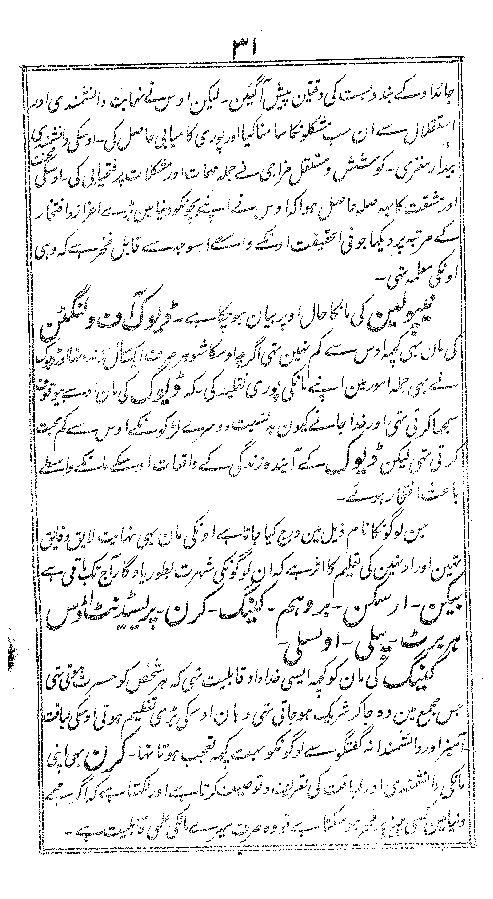 ۳۱
جائداد کے بندوبست کی دقتین پیش آگئین۔ لیکن اوس نے نہایت دانشمندی اور
استقلال سے ان سب مشکلونکا سامنا کیا اور پوری کامیابی حاصل کی۔ اوسکی دانشمندی
بیدار مغزی۔ کوشش و مستقل مزاجی نے جملہ مہمات اور مشکلات پر فتحیابی کی۔ اوسکی محنت
اور مشقت کا یہ صلہ حاصل ہوا کہ اوس نے اپنے بچونکو دنیا مین بڑے اعزاز و افتخار
کے مرتبہ پر دیکھا جو فی الحقیقت اونکے واسطے اسوجہ سے قابل فخر ہے کہ وہی
اونکی معلمہ تھی۔
نیپولین کی مانکا حال اوپر بیان ہوچکا ہے۔ ڈیوک آف ولنگٹن
کی مان بھی کچھ اوس سے کم نہین تھی اگرچہ اوسکا شوہر صرف ایک
نے بھی جملہ امور مین اپنی مانکی پوری تقلید کی۔ کہ ڈیوک کی مان اوسے بیوقوف
سمجھا کرتی تھی اور خدا جانے کیون بہ نسبت دوسرے لڑکونکے اوس سے کم محبت
کرتی تھی لیکن ڈیوک کے آیندہ زندگی کے واقعات اوسکے مانکے واسطے
باعث افتخار ہوئے۔
جن لوگونکا نام ذیل مین درج کیا جاتا ہے اونکی مان بھی نہایت لایق و فایق
تھین اور اونھین کی تعلیم کا اثر ہے کہ ان لوگونکی شہرت بطور یادگار آج تک باقی ہے
بیکن۔ ارسکن۔ بروہم۔ کیننگ۔ کرن۔ پریسڈینٹ اڈمس
ہربرٹ۔ پیلی۔ اوسلی۔
کیننگ کی مان کو کچھ ایسی خداداد قابلیت تھی کہ ہر شخص کو مسرت ہوتی تھی
جس مجمع مین وہ جاکر شریک ہوجاتی تھی وہان اوسکی بڑی تعظیم ہوتی اوسکی لیاقت
آمیز اور دانشمندانہ گفتگو سے لوگونکو بہت کچھ تعجب ہوتا تھا۔ کرن بھی اپنی
مانکی دانشمندی اور لیاقت کی تعریف و توصیف کرتا ہے اور لکھتا ہے کہ اگر مجھے
دنیا مین کسی چیز پر فخر ہوسکتا ہے تو وہ صرف میرے مانکی علمی قابلیت ہے۔